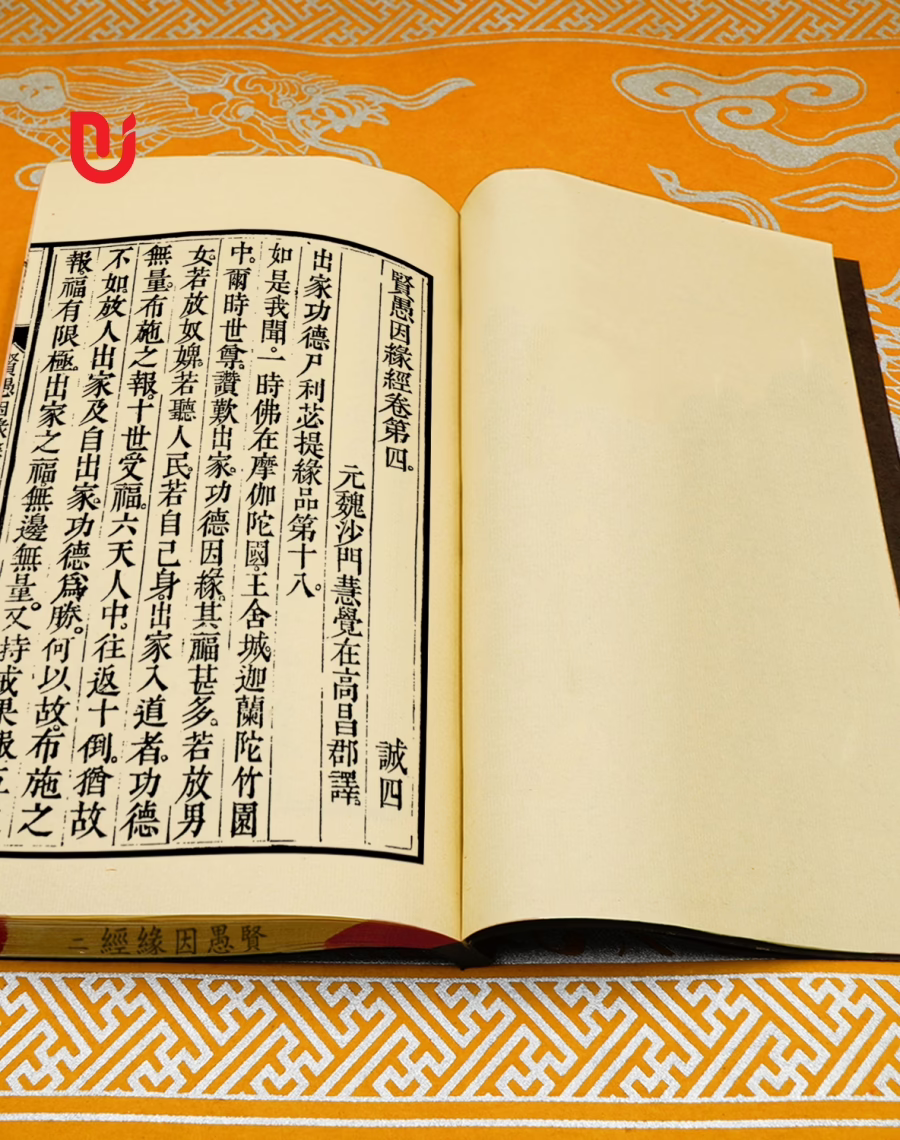 賢愚因緣經卷第四。 誠四
元魏沙門慧覺在高昌郡譯
出家功德尸利苾提緣品第十八。
如是我聞。一時佛在摩伽陀國。王舍城。迦蘭陀竹園
中。爾時世尊。讚歎出家。功德因緣。其福甚多。若放男
女。若放奴婢。若聽人民。若自己身。出家入道者。功德
無量。布施之報。十世受福。六天人中。往返十倒。猶故
不如放人出家及自出家。功德爲勝。何以故。布施之
報。福有限極。出家之福。無邊無量。又持戒果報
賢愚因緣
賢愚因緣經二